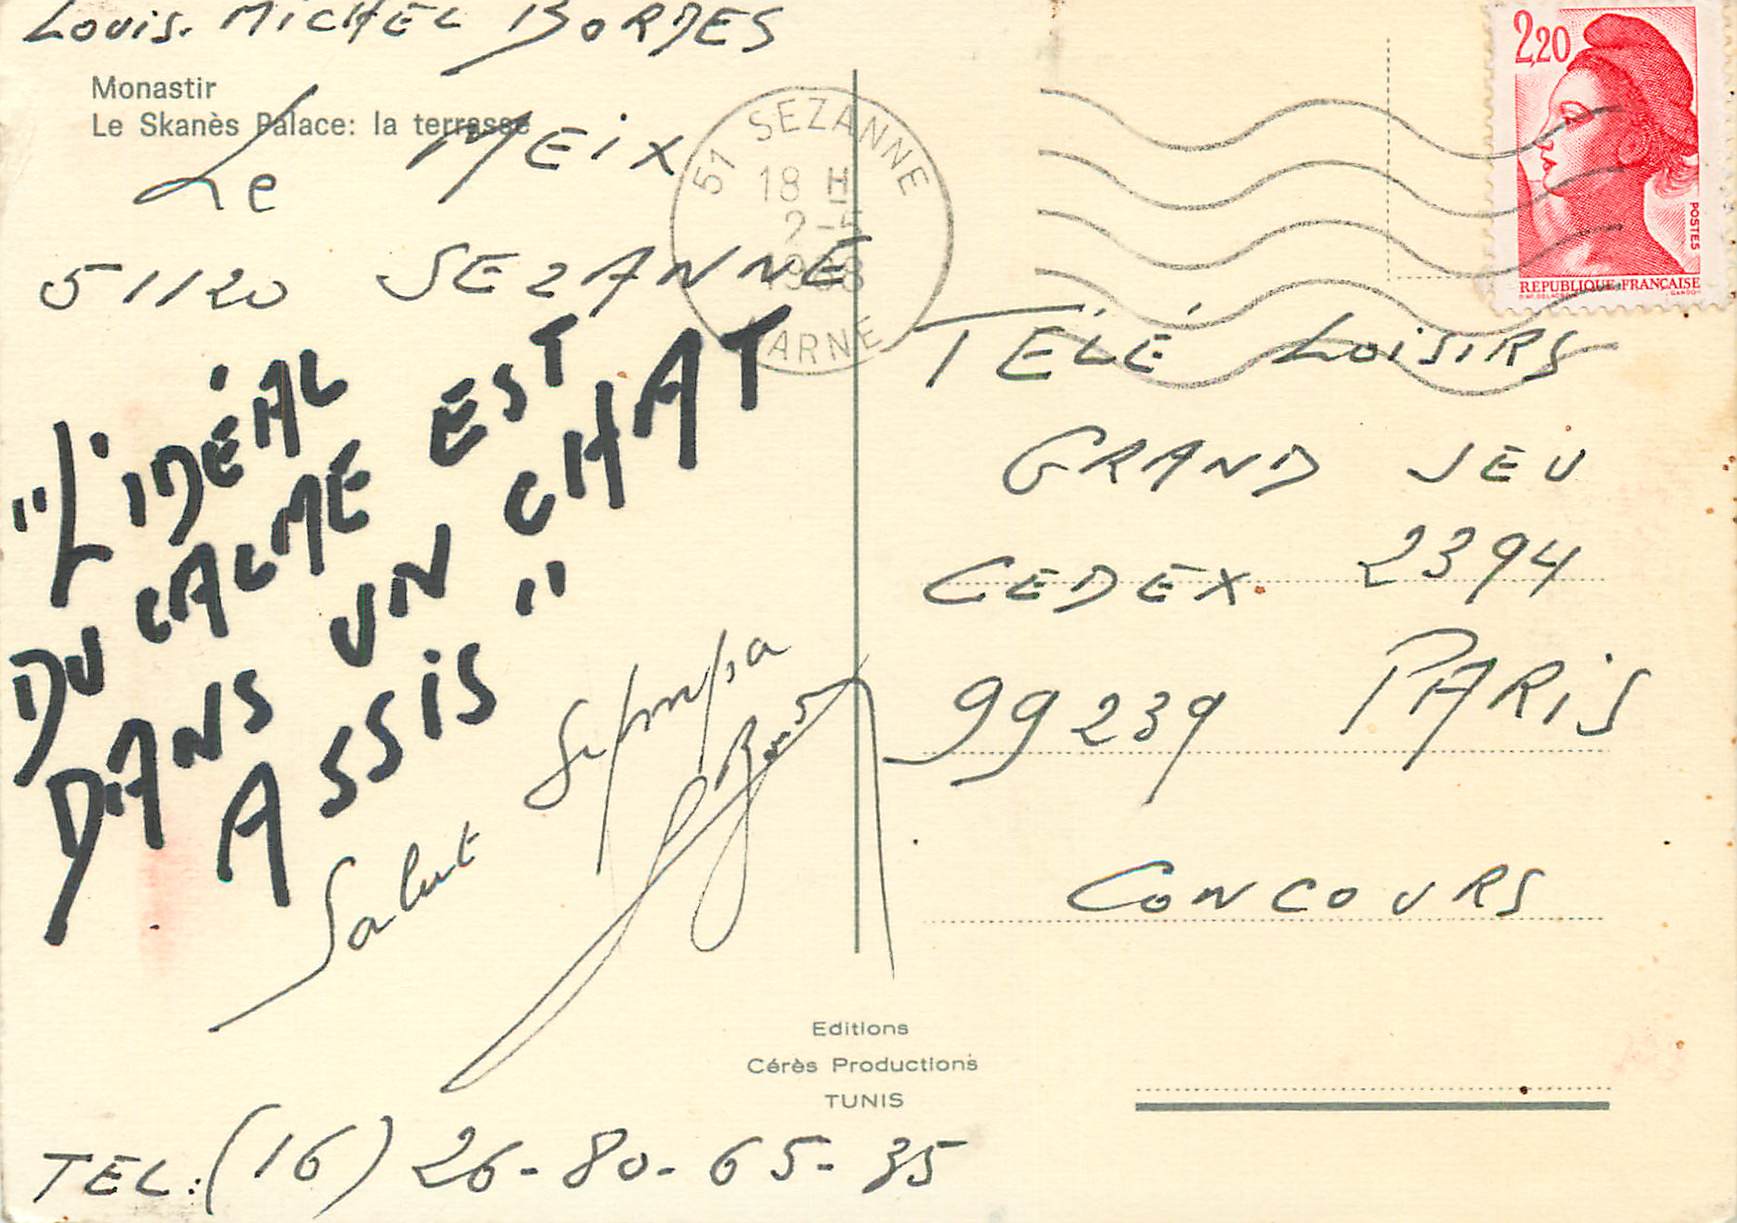 Louis. MICHEL BORDES
Monastir
Le Skanès Palace: la terrasse
Le MEiX
51120 SEZANNE
"L'IDÉAL
DU CALME EST
DANS UN CHAT
ASSIS"
Salut Sympa
TEL:(16) 26-80-65-35
51 SEZANNE
18 H
2-5
1988
MARNE
2,20
POSTES
REPUBLIQUE FRANÇAISE
TÉLÉ LOiSiRS
GRAND JEU
CEDEX. 2394
99239 PARiS
CONCOURS
Editions
Cérès Productions
TUNIS